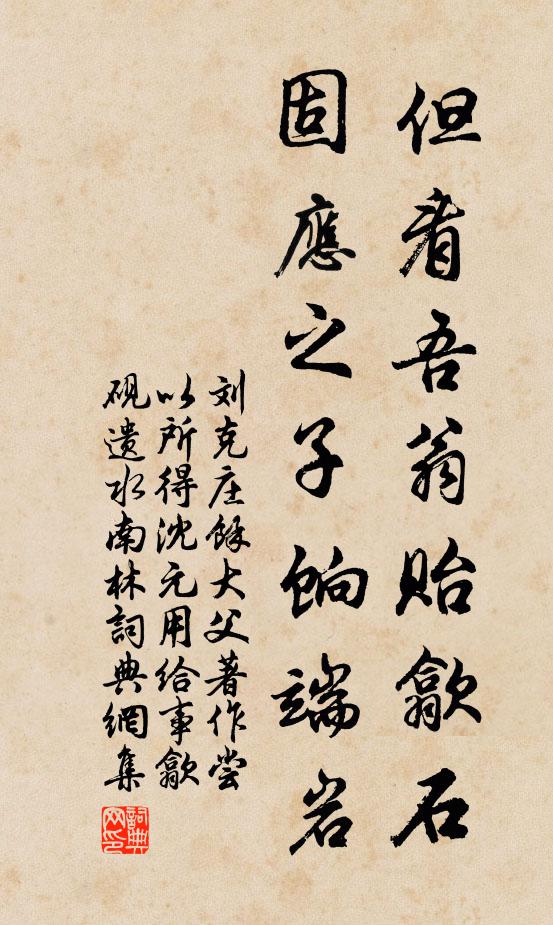 但看吾翁貽歙石
固應之子餉端岩
刘克庄餘大父著作尝
以所得沈元用给事歙
砚遗水南林詞典網集
詞典网印